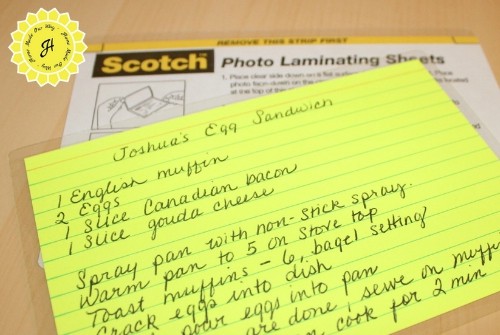 REMOVE THIS STRIP FIRST
Scotch Photo Laminating Sheets
1. Place clear side down on a flat
Place
photo face-down on the
located
at the top of the
Joshua's Egg Sandwich
1 English muffin
2 Eggs
1 Slice Canadian bacon
1 Slice gouda cheese
Spray pan with non-stick spray.
Warm pan to 5 on stove top
Toast muffins - 6, bagel setting
Crack eggs into dish
pour eggs into pan
are done, serve on muffin
cook for 2 min
JH